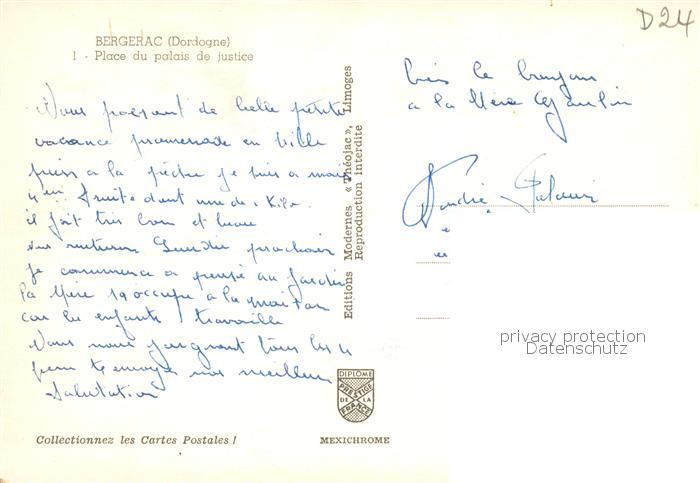 D24
BERGERAC (Dordogne)
1 - Place du palais de justice
Nous passont de belle petite
vacance promenade en ville
puis a la pèche je puis a mois
4 truite dont une de 1 Kilo
il fait très bon et beau
nus rentieron Lundi prochain
je commence a pensé au jardin
la Mère s'occupe a la maison
car les enfants travaille
Nous nous joignont tous les 4
pour te envoyer nos meilleur
Salutation
Editions Modernes « Théojac », Limoges
Reproduction interdite
bien le bonjour
a la Mère
André
privacy protection
Datenschutz
DIPLOME
PRESTIGE
DE LA
FRANCE
Collectionnez les Cartes Postales !
MEXICHROME